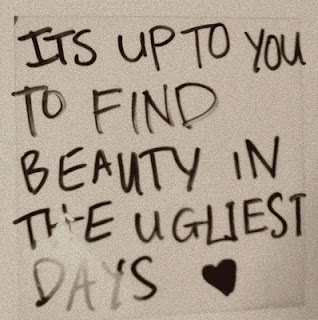 ITS UP TO YOU
TO FIND
BEAUTY IN
THE UGLIEST
DAYS ♥